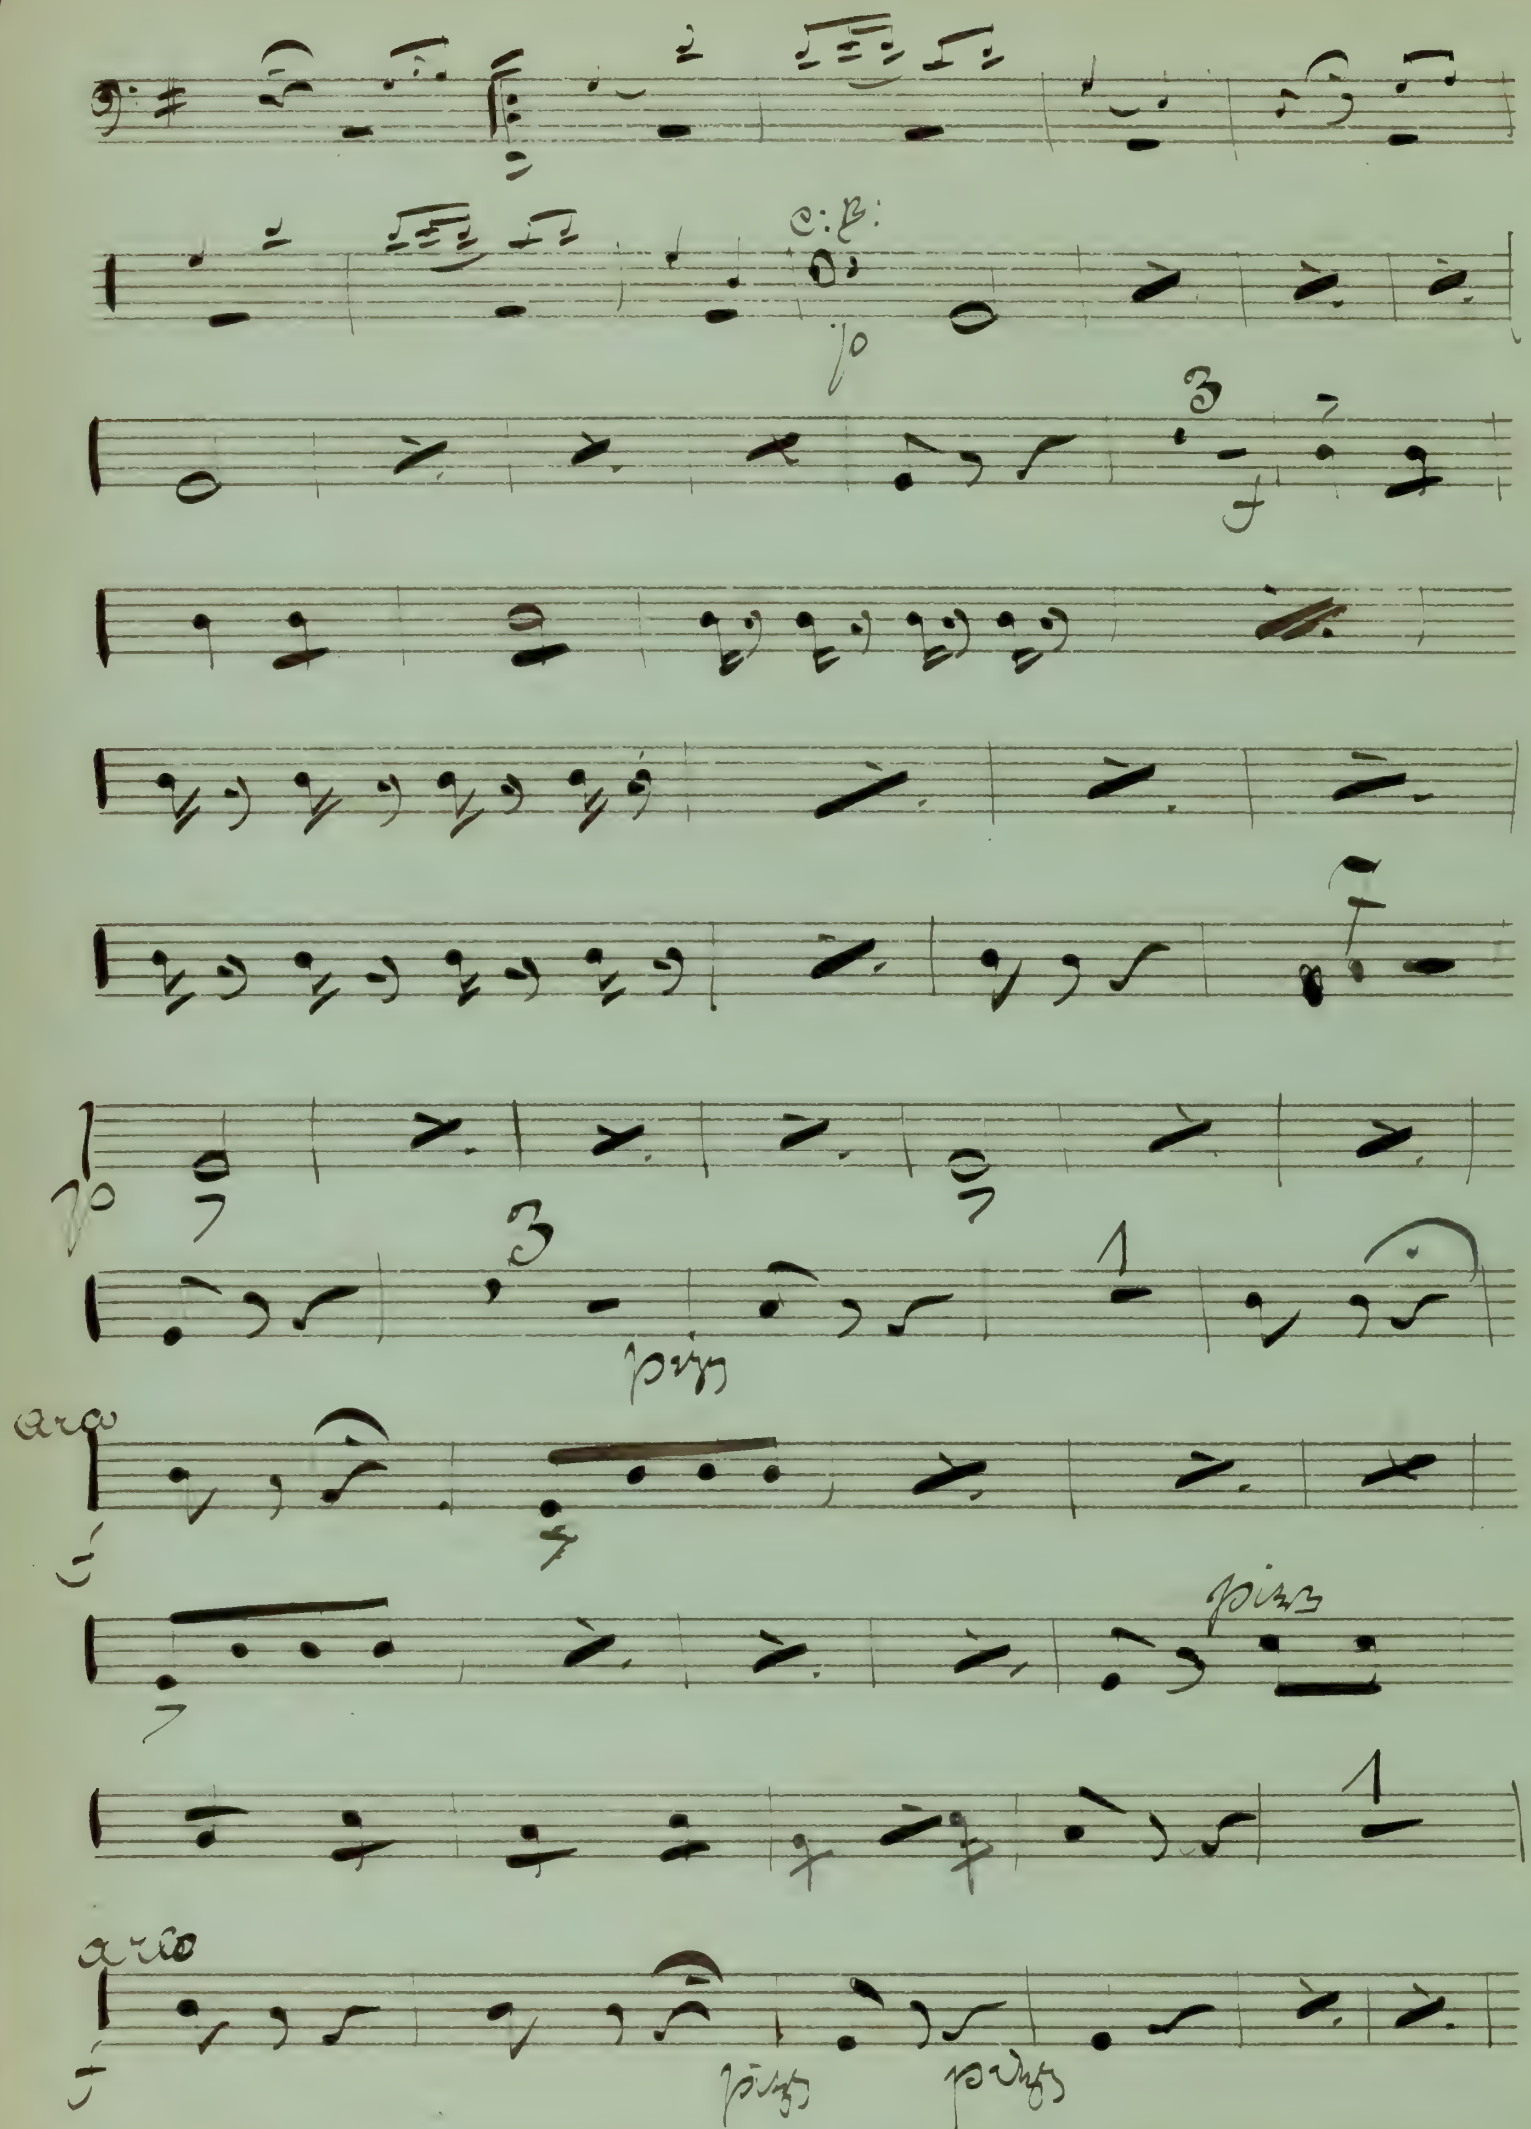 C:B:
p
3
f
7
p
3
1
pizz
arco
f
pizz
1
arco
f
pizz pizz